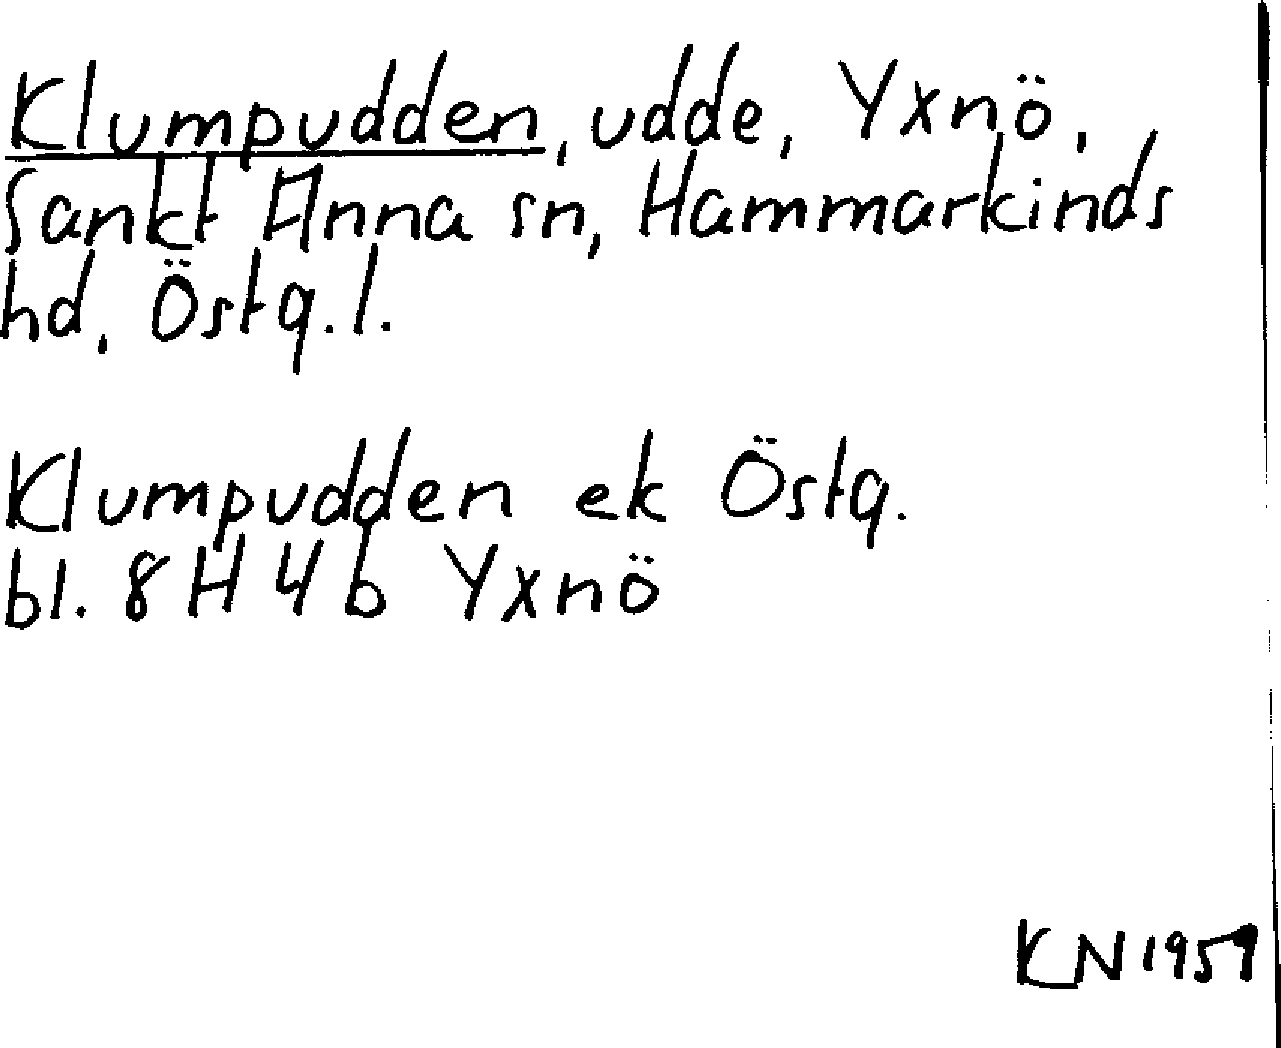 Klumpudden, udde, Yxnö,
Sankt Anna sn, Hammarkinds
hd, Östg.l.
Klumpudden ek Östg.
bl. 8H 4b Yxnö
KN 1959